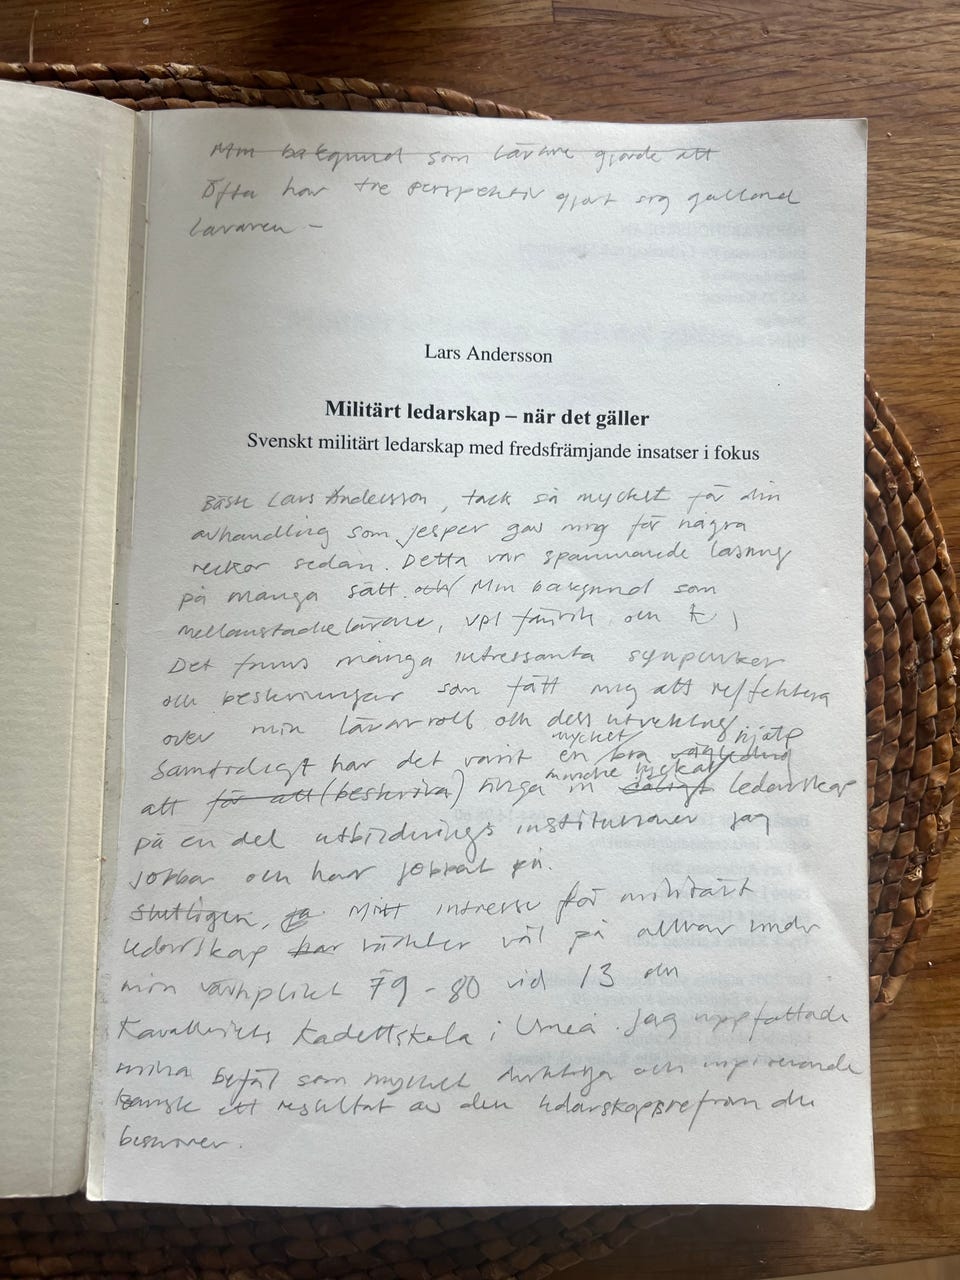 Min bakgrund som lärare gjorde att
Ofta har tre perspektiv gjort sig gälland
läraren –
Lars Andersson
Militärt ledarskap – när det gäller
Svenskt militärt ledarskap med fredsfrämjande insatser i fokus
Bäste Lars Andersson, tack så mycket för din
avhandling som Jesper gav mig för några
veckor sedan. Detta var spännande läsning
på många sätt och Min bakgrund som
mellanstadielärare, vpl fänrik och
Det finns många intressanta synpunker
och beskrivningar som fått mig att reflektera
över min lärarroll och dess utveckling
mycket hjälp
Samtidigt har det varit en bra vägledning
mindre lyckat
att för att (beskriva) ringa in dåligt ledarskap
på en del utbildnings institutioner jag
jobbar och har jobbat på.
Slutligen, Mitt intresse för militärt
ledarskap har väcktes väl på allvar under
min värnplikt 79 - 80 vid 13 den
Kavalleriets Kadettskola i Umeå. Jag uppfattade
mina befäl som mycket duktiga och inspirerande
kanske ett resultat av den ledarskapsreform du
beskriver.